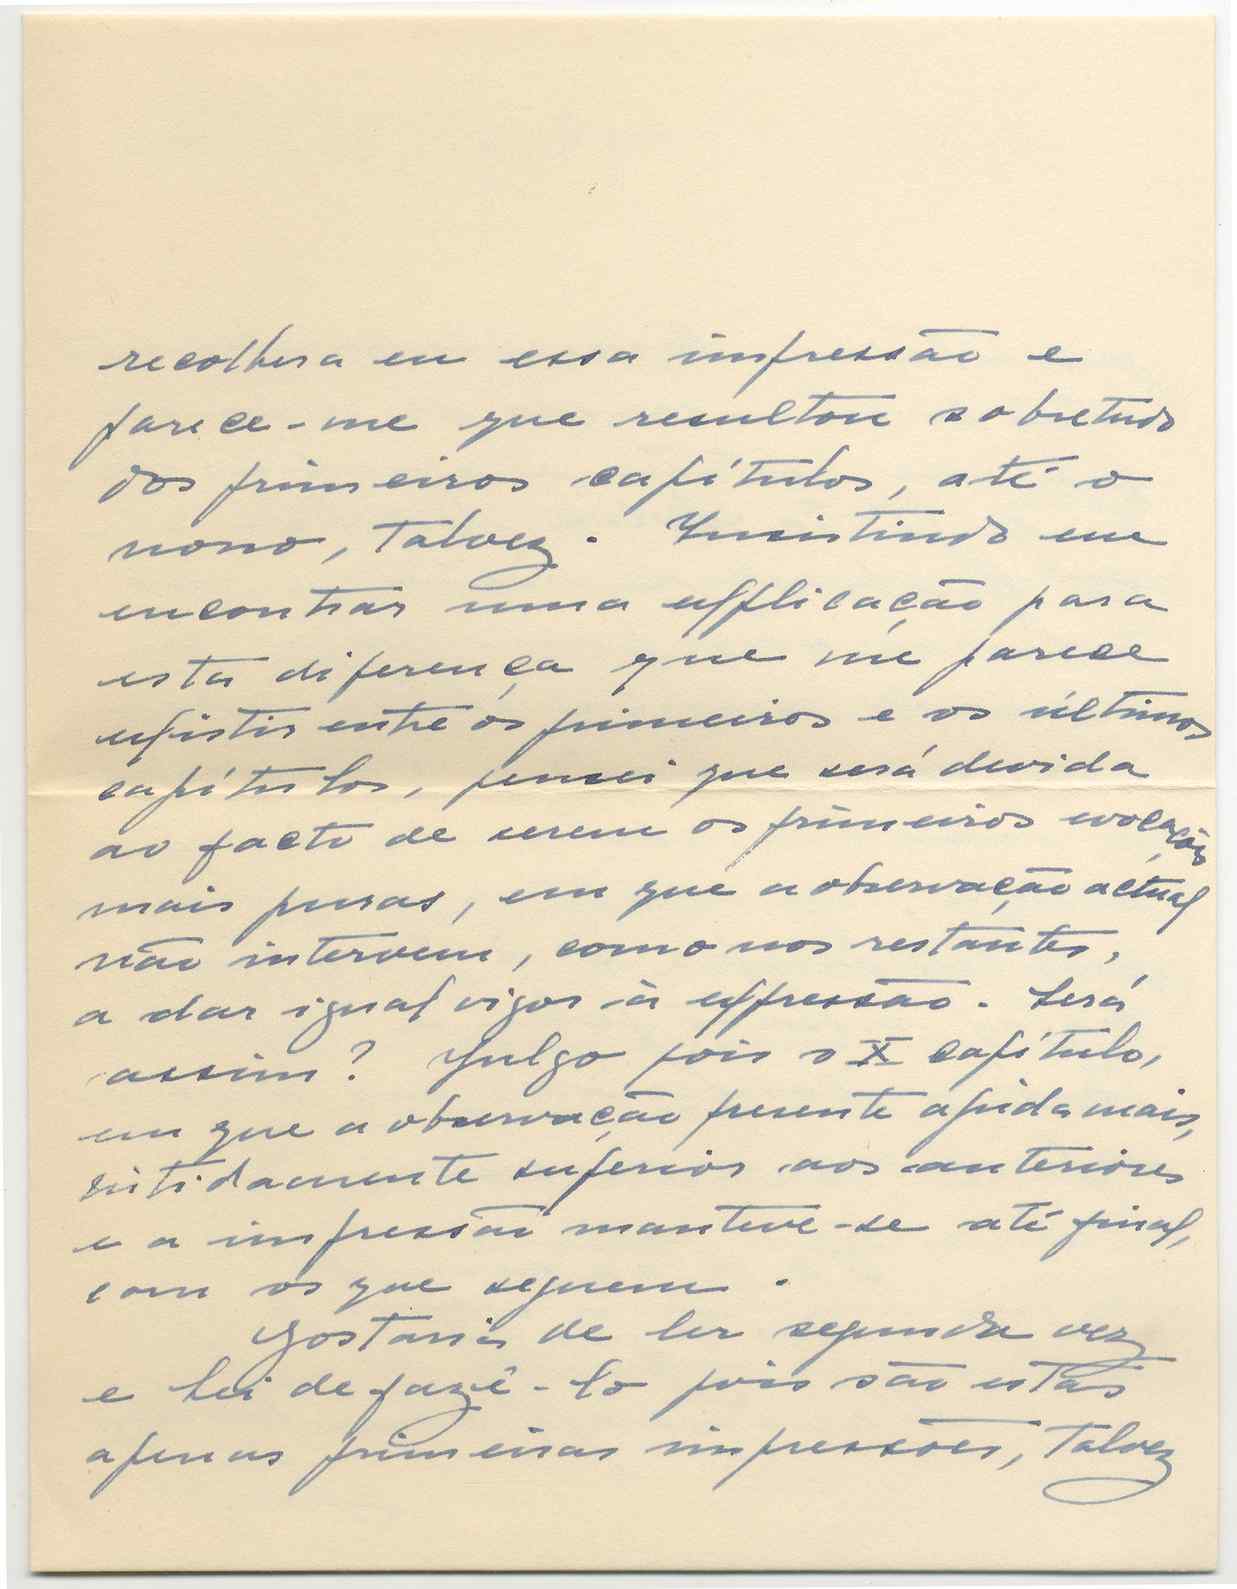 recolhera eu essa impressão e
parece-me que resultou sobretudo
dos primeiros capítulos, até o
nono, talvez. Insistindo em
encontrar uma explicação para
esta diferença que me parece
existir entre os primeiros e os últimos
capítulos, pensei que será devida
ao facto de serem os primeiros evocações
mais puras, em que a observação actual
não intervem, como nos restantes,
a dar igual vigor à expressão. Será
assim? Julgo pois o X capítulo,
em que a observação presente ajuda mais,
nitidamente superior aos anteriores
e a impressão manteve-se até final,
com os que seguem.
Gostaria de ler segunda vez
e hei de fazê-lo pois são estas
apenas primeiras impressões, talvez